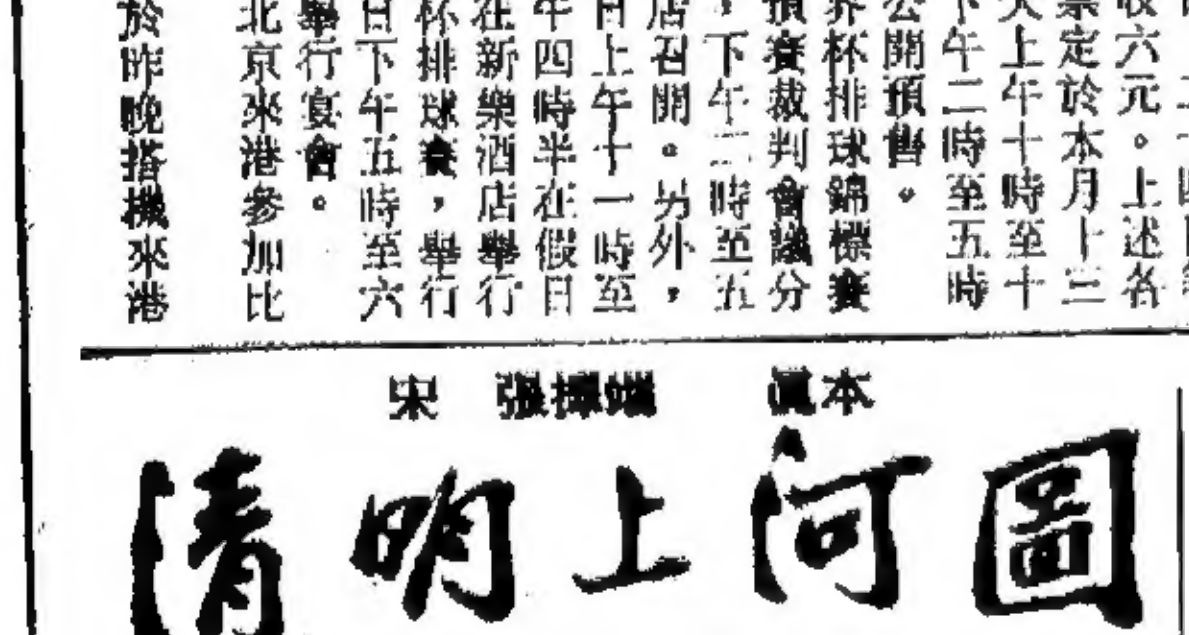 收六元。上述各
票定於本月十三
天上午十時至十
下午二時至五時
公開預售。
界杯排球錦標賽
預賽裁判會議分
，下午二時至五
店召開。另外，
日上午十一時至
午四時半在假日
在新樂酒店舉行
杯排球賽，舉行
日下午五時至六
舉行宴會。
北京來港參加比
於昨晚搭機來港
宋 張擇端 眞本
清明上河圖